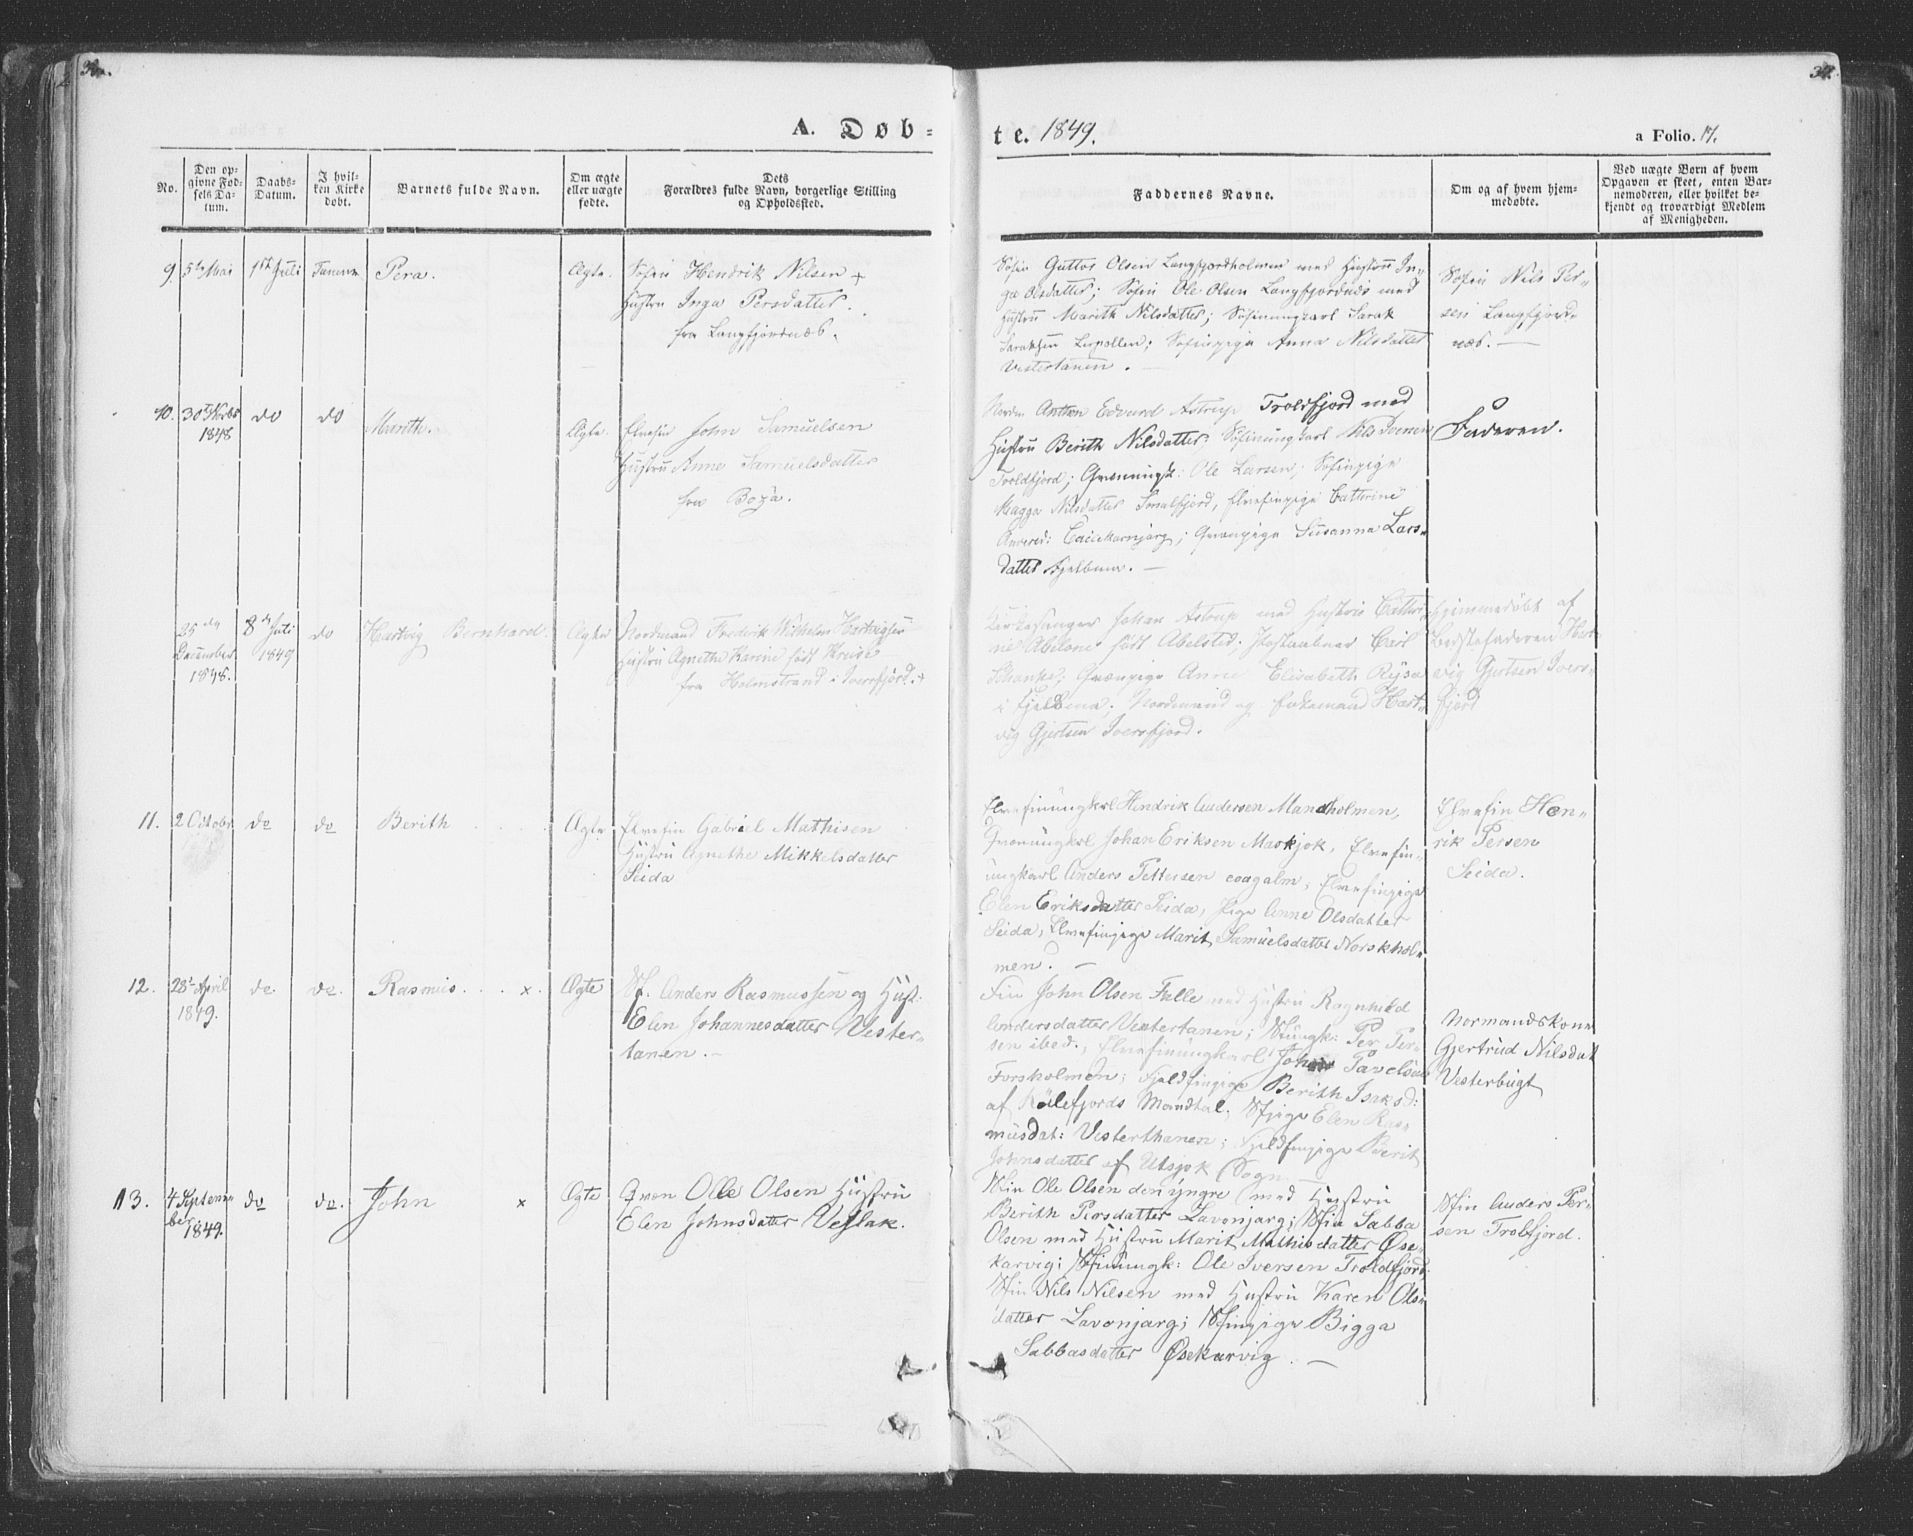 A. Døb-
te. 1849.
a Folio. 17.
No.
Den op-
givne Fød-
sels Da-
tum.
Daabs-
Datum.
I hvil-
ken Kirke
døbt.
Barnets fulde Navn.
Om ægte
eller uægte
fødte.
Dets
Forældres fulde Navn, borgerlige Stilling
og Opholdssted.
Faddernes Navne.
Om og af hvem hjem-
medøbte.
Ved uægte Børn af hvem
Opgaven er skeet, enten Bar-
nemoderen, eller hvilket be-
kjendt og troværdigt Medlem
af Menigheden.
9. 5te Mai 1ste Juli Pera. Ægte. Søfin Hendrik Nilsen +
Hustru Inga Persdatter
fra Langfjordnæs.
Søfin Guttor Olsen Langfjordholmen med Hustru In-
ga Olsdatter; Søfin Ole Olsen Langfjordnæs med
Hustru Marith Nilsdatter; Søfinungkarl Sarak
Saraksen Søfinpige Anna Nilsdatter
Vestertanen.
Søfin Nils Per-
sen Langfjord-
næs.
10. 30te Novbr
1848 do do Marith. Ægte. Elvefin John Samuelsen
Hustru Anne Samuelsdatter
fra
Anthon Edvard Astrup Troldfjord med
Hustru Berith Nilsdatter, Søfinungkarl Nils Iversen
Troldfjord; Ole Larsen; Søfinpige
Magga Nilsdatter Smalfjord, Elvefinpige Catterine
Susanna Lars-
datter
Faderen.
25de
December
1848. 8de Juli
1849 do Hartvig Bernhard Ægte Nordmand Frederik Wilhelm Hartvigsen
Hustru Agnethe Karine født Kreise
fra Holmstrand i Iversfjord. +
Kirkesanger Johan Astrup med Hustru Cathri-
ne Abelone født Abelsted; Carl
Schanke; Anne Elisabeth
i Nordmand og Enkemand Hart-
vig Gjertsen Iversfjord.
Hjemmedøbt af
Bedstefaderen Hart-
vig Gjertsen Ivers-
fjord
11. 2 Octobr do do Berith Ægte Elvefin Gabriel Mathisen
Hustru Agnethe Mikkelsdatter
Seida
Elvefinungkarl Hindrik Andersen Mandholmen,
Johan Eriksen Maskjok, Elvefin-
ungkarl Anders Pettersen Elvefinpige
Elen Eriksdatter Seida, Pige Anne Olsdatter
Seida, Elvefinpige Marit Samuelsdatter Norskhol-
men.
Elvefin Hen-
rik Persen
Seida.
12. 28de April
1849. do. do. Rasmus. x. Ægte Sf. Anders Rasmussen og Hust:
Elen Johannesdatter Vester-
tanen.
Fin John Olsen Fælle med Hustru Ragnhild
Andersdatter Vestertanen; Per Per-
sen ibed., Elvefinungkarl Pavelsen
Forsholmen; Fjeldfinpige Berith Isaksd:
af Mandtal; Elen Ras-
musdat: Vesterthanen; Fjeldfinpige Berit
Johnsdatter af Utsjok Sogn.
Normandskone
Gjertrud Nilsdat
Vesterbugt
13. 4 Septem-
ber
1849. do do. John x Ægte Qvæn Olle Olsen Hustru
Elen Johnsdatter
Sfin Ole Olsen den yngre med Hustru
Berith Persdatter Lavonjarg; Sfin Sabba
Olsen med Hustru Marit Mathisdatter Øse-
karvig; Sfinungk: Ole Iversen Troldfjord
Sfin Nils Nilsen med Hustru Karen Ols-
datter Lavonjarg; Sfinpige Bigga
Sabbasdatter Øsekarvig.
Sfin Anders Per-
sen Trolfjord.